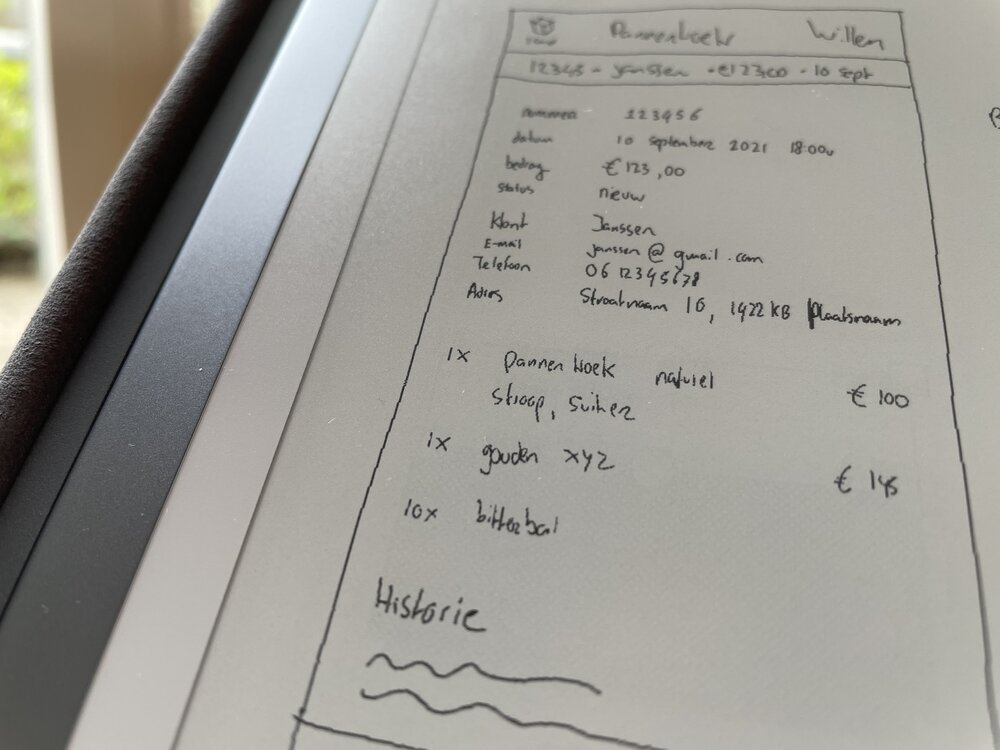 Pannenkoek Willem
12345 - Janssen - €123,00 - 10 sept
nummer 123456
datum 10 september 2021 18:00u
bedrag € 123,00
status nieuw
Klant Janssen
E-mail janssen@gmail.com
Telefoon 06 12345678
Adres Straatnaam 10, 1422 KB Plaatsnaam
1x pannenkoek naturel € 100
stroop, suiker
1x gouden xyz € 145
10x bitterbal
Historie